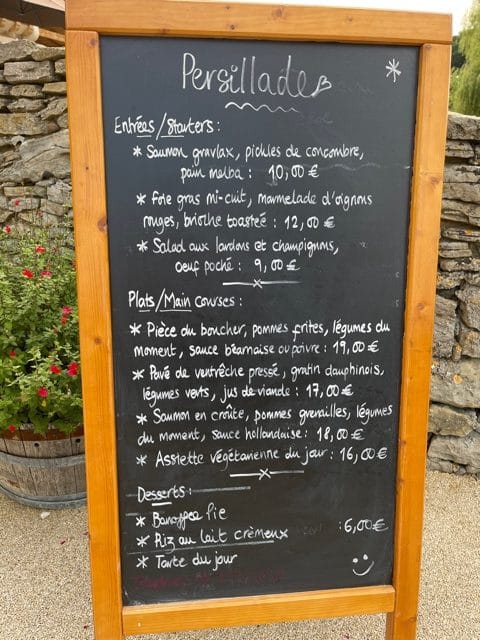 Persillade
Entrées/Starters:
* Saumon gravlax, pickles de concombre,
pain melba: 10,00 €
* Foie gras mi-cuit, marmelade d'oignons
rouges, brioche toastée: 12,00 €
* Salad aux lardons et champignons,
oeuf poché: 9,00 €
Plats/Main courses:
* Pièce du boucher, pommes frites, légumes du
moment, sauce béarnaise ou poivre: 19,00 €
* Pavé de ventrêche pressé, gratin dauphinois,
légumes verts, jus de viande: 17,00 €
* Saumon en croûte, pommes grenailles, légumes
du moment, sauce hollandaise: 18,00 €
* Assiette végétarienne du jour: 16,00 €
Desserts:
* Banoffee Pie
* Riz au lait crèmeux :6,00 €
* Tarte du jour